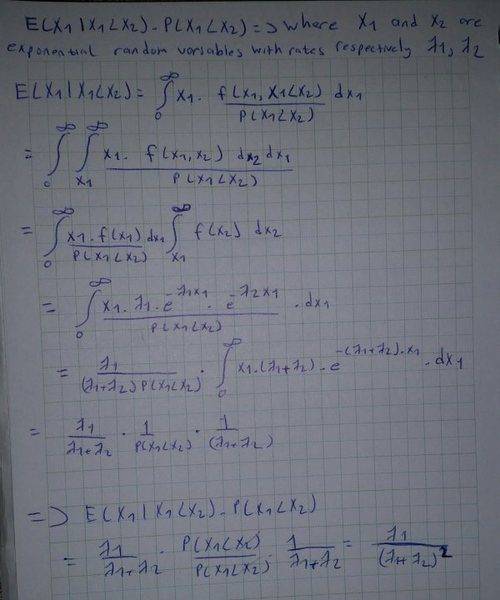 E(X1 | X1<X2) . P(X1<X2) => where X1 and X2 are
exponential random variables with rates respectively λ1, λ2
E(X1 | X1<X2) = ∫₀^∞ x1 . f(x1, X1<X2) / P(X1<X2) dx1
= ∫₀^∞ ∫_{x1}^∞ x1 . f(x1, x2) dx2 dx1 / P(X1<X2)
= ∫₀^∞ x1 . f(x1) / P(X1<X2) dx1 ∫_{x1}^∞ f(x2) dx2
= ∫₀^∞ x1 . λ1 . e^{-λ1x1} . e^{-λ2x1} / P(X1<X2) . dx1
= λ1 / (λ1+λ2) P(X1<X2) . ∫₀^∞ x1 . (λ1+λ2) . e^{-(λ1+λ2).x1} . dx1
= λ1 / λ1+λ2 . 1 / P(X1<X2) . 1 / (λ1+λ2)
=> E(X1 | X1<X2) . P(X1<X2)
= λ1 / λ1+λ2 . P(X1<X2) / P(X1<X2) . 1 / λ1+λ2 = λ1 / (λ1+λ2)²